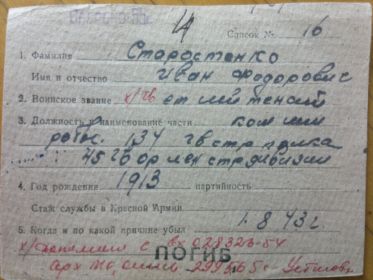 14
Список № 16
1. Фамилия Старостенко
Имя и отчество Иван Федорович
2. Воинское звание х/гв ст лейтенант
3. Должность и наименование части ком мин
роты. 134 гв стр полка
45 гв ор лен стр дивизии
4. Год рождения 1913 партийность
Стаж службы в Красной Армии
5. Когда и по какой причине убыл 1.8.43 г.
х/ с вх 028323-54
ПОГИБ